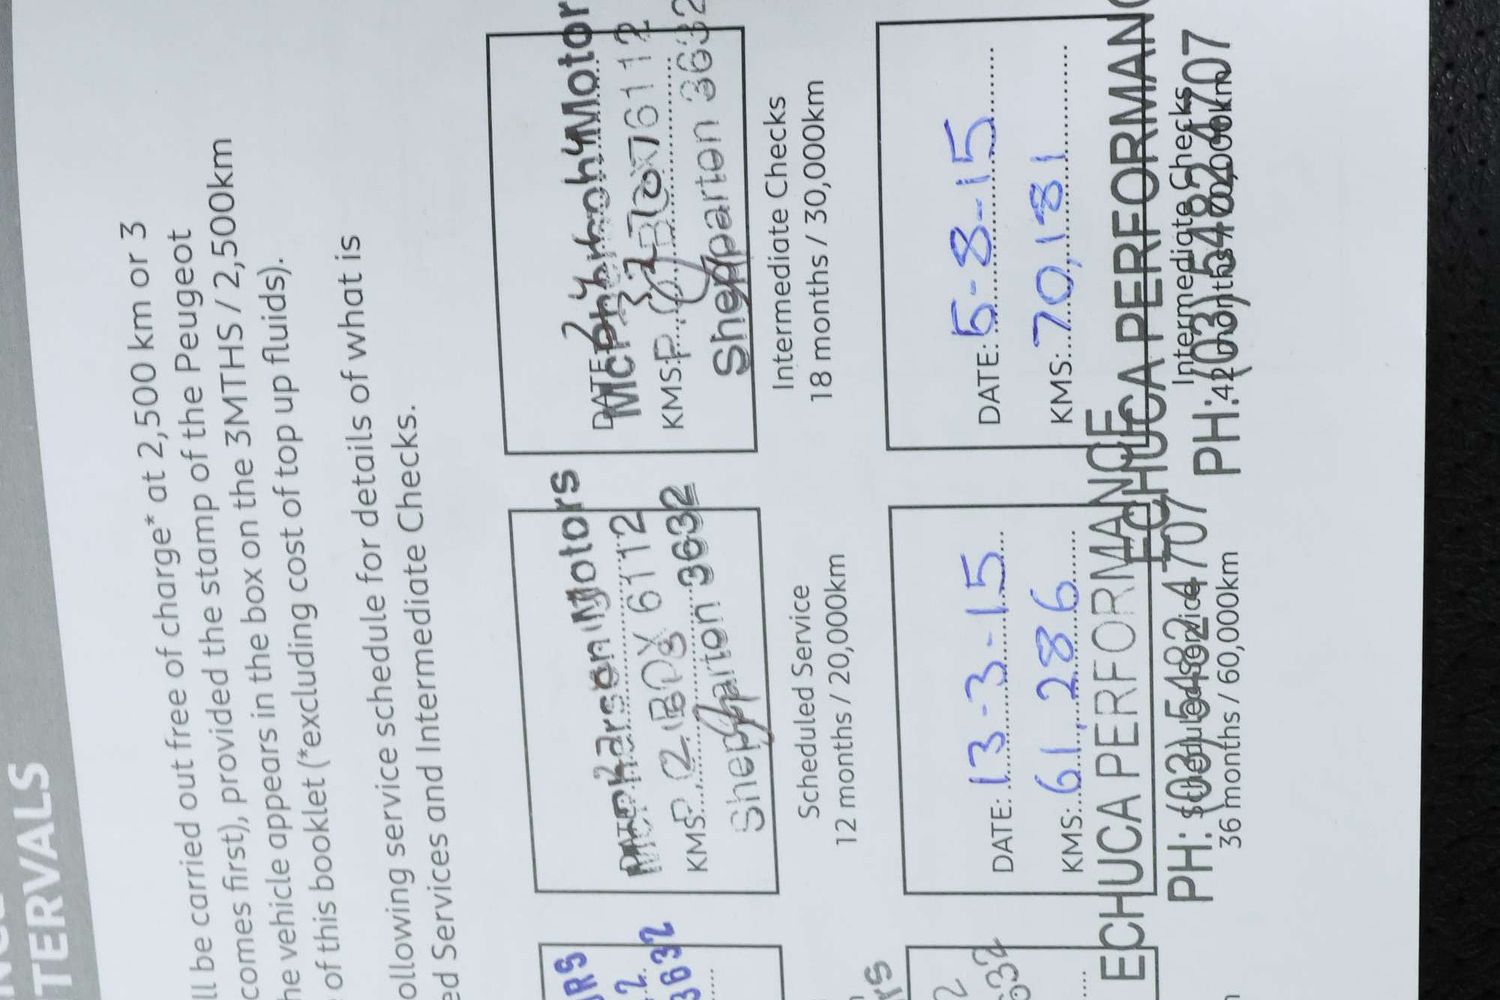 TERVALS
ll be carried out free of charge* at 2,500 km or 3
comes first), provided the stamp of the Peugeot
he vehicle appears in the box on the 3MTHS / 2,500km
of this booklet (*excluding cost of top up fluids).
ollowing service schedule for details of what is
ed Services and Intermediate Checks.
3632
Motors
KMS: 6112
Shepparton 3632
Scheduled Service
12 months / 20,000km
DATE: Motor
KMS: 6112
Shepparton 3632
Intermediate Checks
18 months / 30,000km
DATE: 13-3-15
KMS: 61,286
ECHUCA PERFORMANCE
PH: (03) 5482 4707
Scheduled Service
36 months / 60,000km
DATE: 5-8-15
KMS: 70,181
ECHUCA PERFORMANC
Intermediate Checks
PH: (03) 5482 4707
42 months / 70,000km